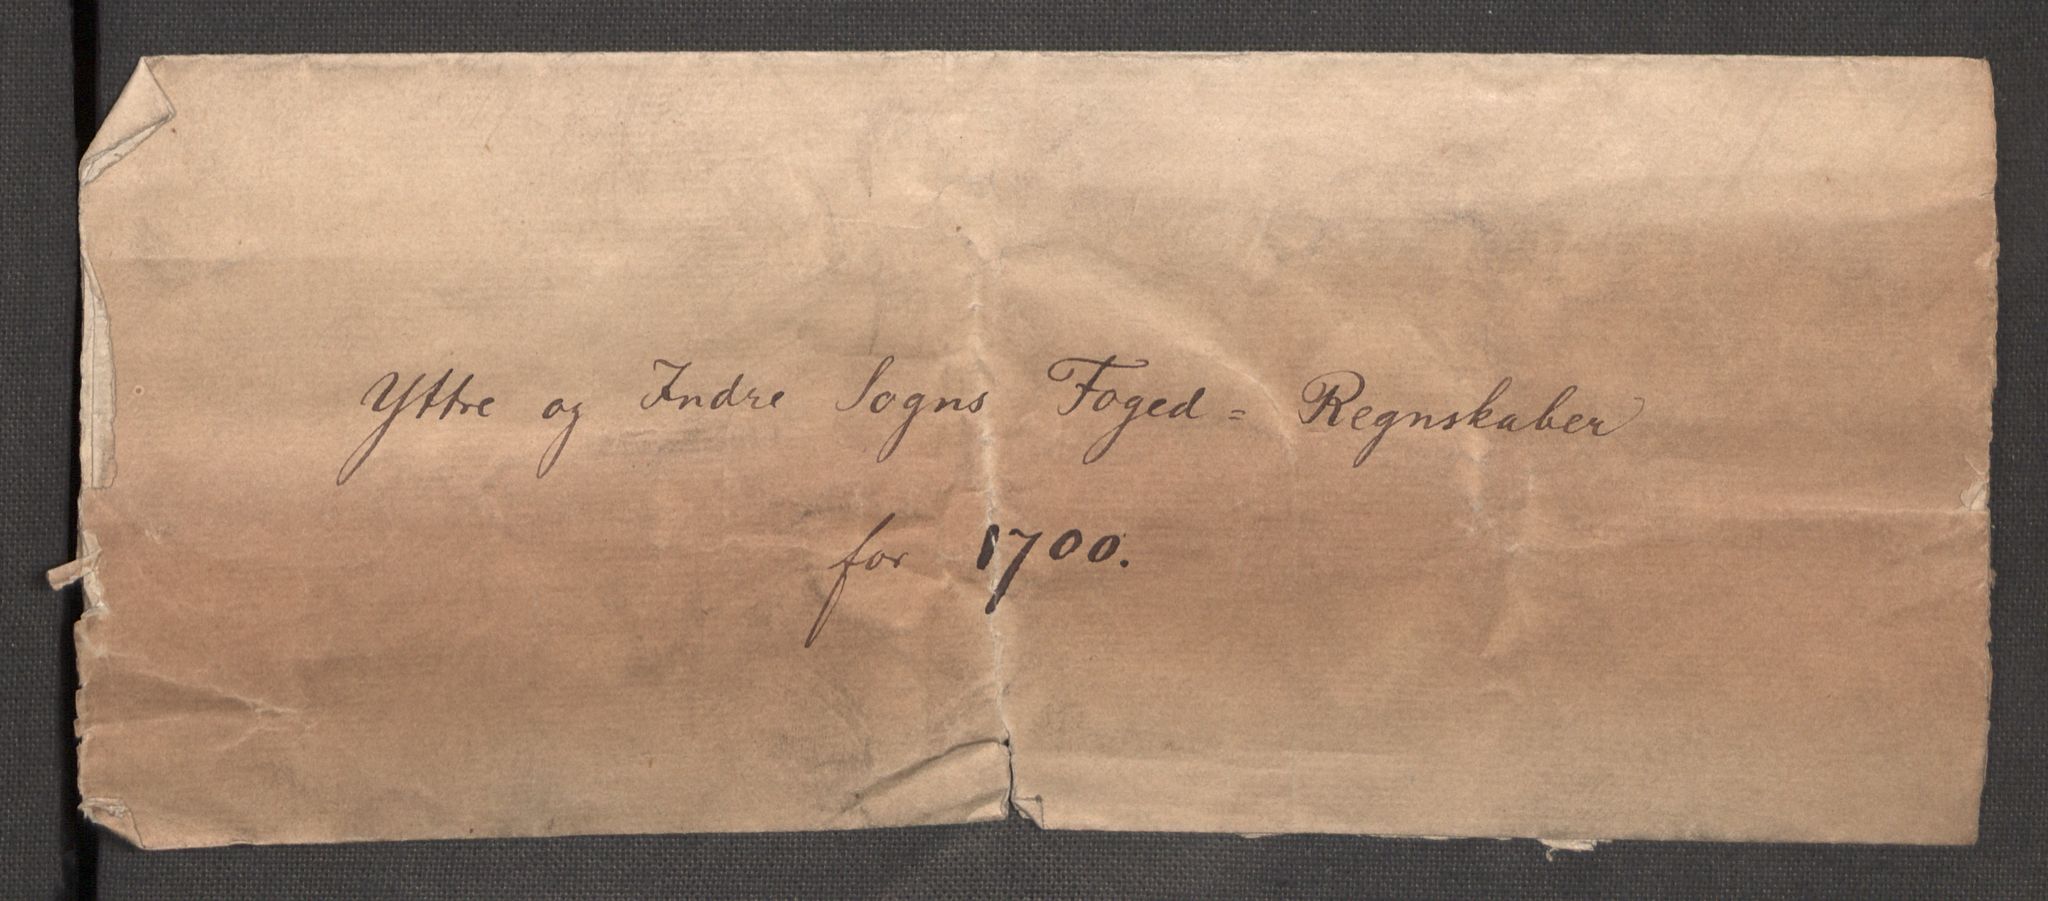 Yttre og Indre Sogns Foged= Regnskaber
for 1700.